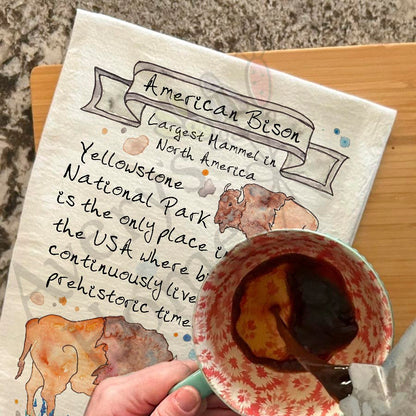 American Bison
Largest Hammel in
North America
Yellowstone
National Park
is the only place
the USA where
continuously live
prehistoric time